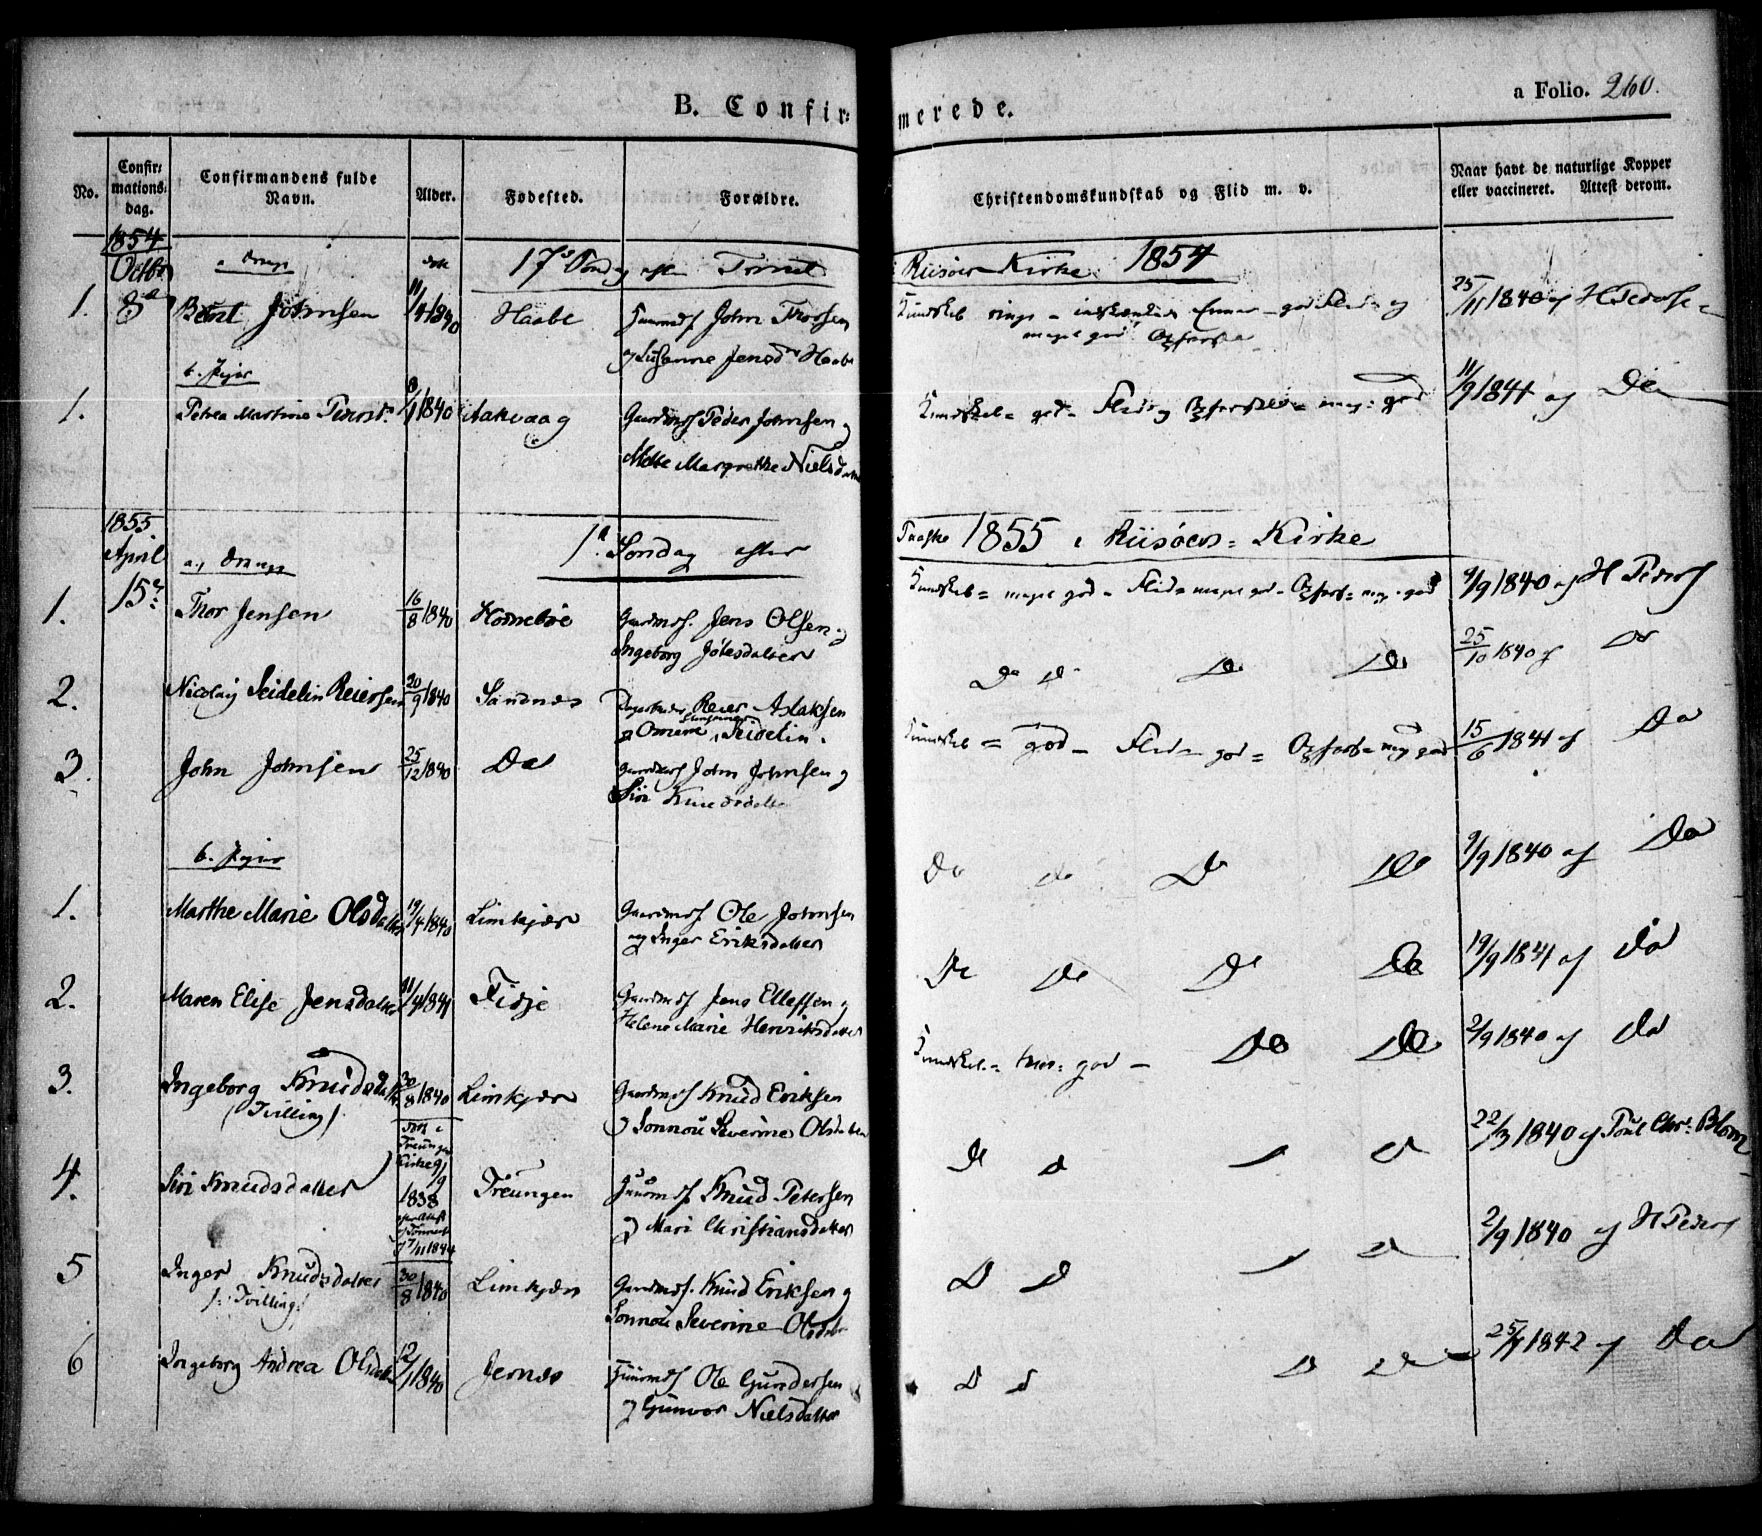 B. Confir:
merede.
a Folio. 260.
No.
Confir:
mations:
dag.
Confirmandens fulde
Navn.
Alder.
Fødested.
Forældre.
Christendomskundskab og Flid m. v.
Naar havt de naturlige Kopper
eller vaccineret. Attest derom.
1854
Octbr
a Drenge
17de Søndag efter Trinit
Riisöer Kirke 1854
1. 8de Berent Johnsen 11/4 1840 Haabe Gaardmd John Thorsen
og Susanne Jensdr Haabe
Kundskab ringe - god Flid og
meget god Opførsel
25/11 1840 af H Peders
b. Piger
1. Petrea Martine Pedersd. 1840 Aakvaag Gaardmd Peder Johnsen og
Mette Margrethe Nielsdatter
Kundskab = god - Flid og Opførsel = meg: god
11/9 1841 af Do
1855
April
a, Drenge
1ste Søndag efter
Paaske 1855 i Riisöers = Kirke
1. 15de Thor Jensen 16/8 1840 Hornebøe Gaardmd. Jens Olsen og
Ingeborg
Kundskab = meget god - Flid = meget god - Opførs = meg. god
9/9 1840 af H Peders
2. Nicolay Seidelin Reiersen 20/9 1840 Sandnæs Reier Aslaksen
Seidelin.
Do Do Do Do
25/10 1840 af Do
3. John Johnsen 25/12 1840 Do Gaardmd John Johnsen og
Siri Knudsdatter
Kundskab = god - Flid = god = Opførs = meg god
15/6 1841 af Do
b. Piger
1. Marthe Marie Olsdatter 19/4 1840 Limkjær Gaardmd Ole Johnsen
og Inger Eriksdatter
Do Do Do Do
9/9 1840 af Do
2. Maren Elise Jensdatter 11/4 1841 Fidje Gaardmd Jens Ellefsen og
Helene Marie Henriksdatter
Do Do Do Do
19/9 1841 af Do
3. Ingeborg Knudsdatter 30/8 1840 Limkjær Gaardmd Knud Eriksen
(Tvilling)
og Sonnou Severine Olsdatter
Kundskab = god - Do Do
2/9 1840 af Do
4. Siri Knudsdatter
Treungen
Kirke 9/9
1838
7/11 1844
Treungen Gaardmd Knud Petersen
og Mari Christiansdatter
Do Do Do
22/3 1840 af Poul Chr. Blom
5 Inger Knudsdatter 30/8 1840 Limkjær Gaardmd. Knud Eriksen og
/: Tvilling :/
Sonnou Severine Olsdatter
Do Do Do
2/9 1840 af H Peders
6 Ingeborg Andrea Olsdatter 1840 Jernæs Gaardmd Ole Gundersen
og Gunvor Nielsdatter
Do Do Do Do
1842 af Do